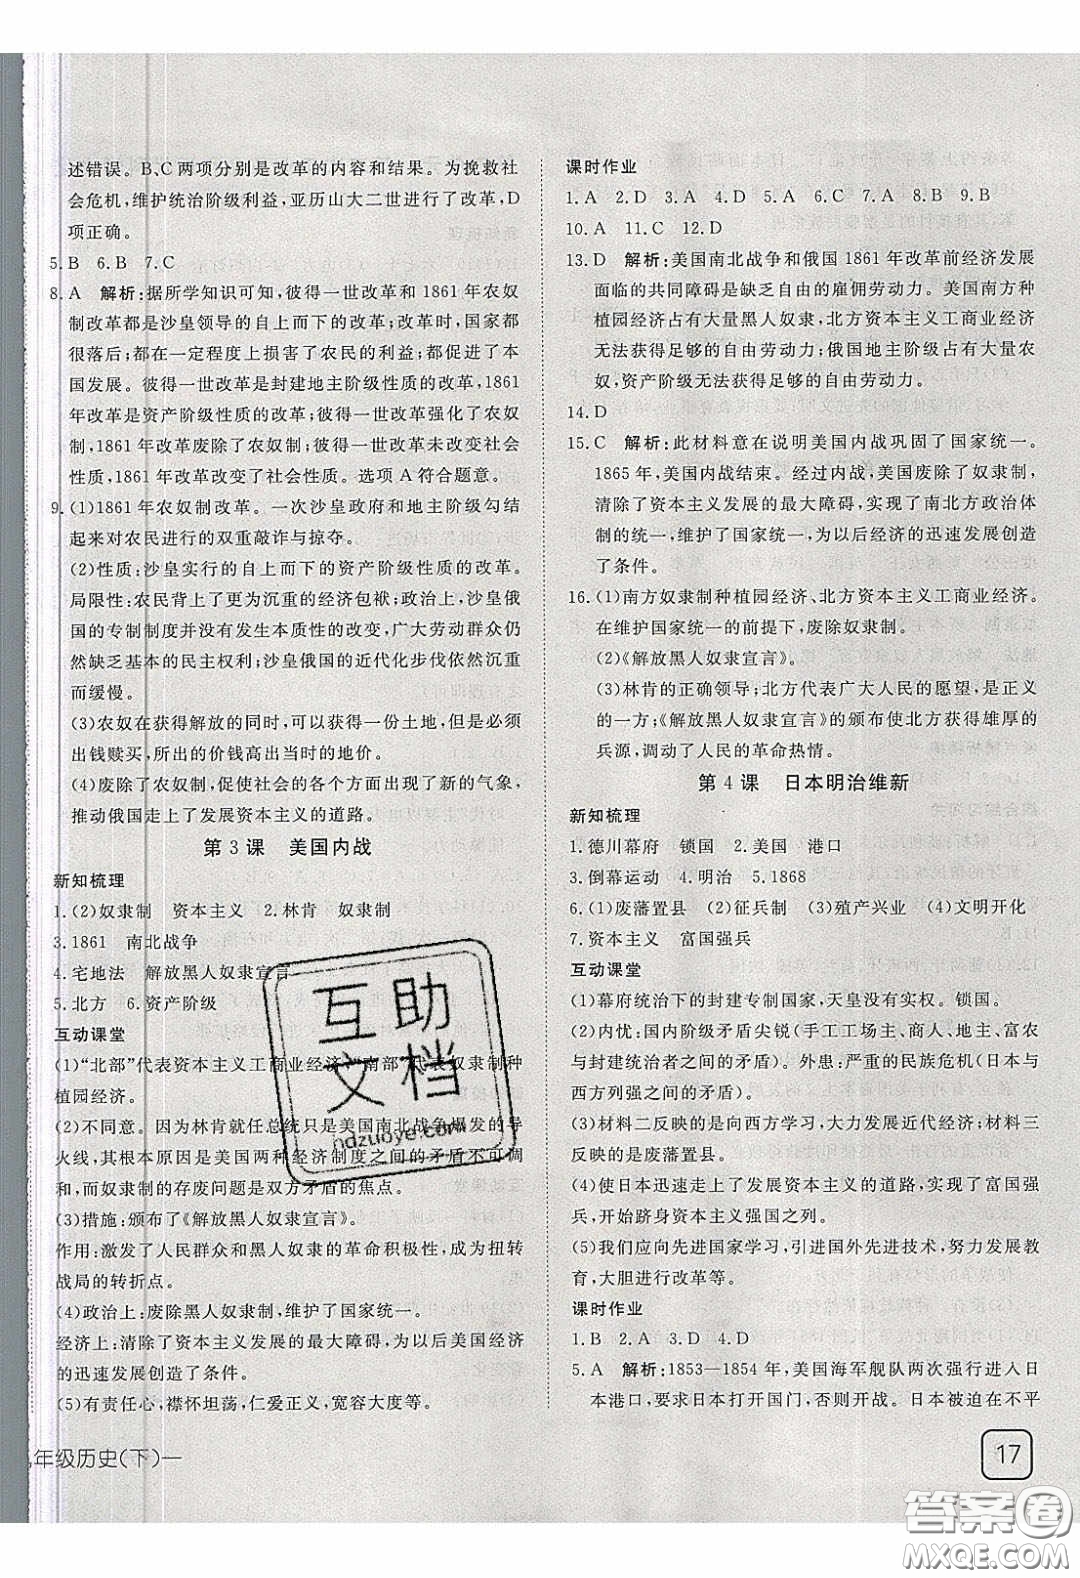 述错误。B、C两项分别是改革的内容和结果。为挽救社
会危机,维护统治阶级利益,亚历山大二世进行了改革,D
项正确。
5. B 6. B 7. C
8. A 解析:据所学知识可知,彼得一世改革和1861年农奴
制改革都是沙皇领导的自上而下的改革;改革时,国家都
很落后;都在一定程度上损害了农民的利益;都促进了本
国发展。彼得一世改革是封建地主阶级性质的改革,1861
年改革是资产阶级性质的改革;彼得一世改革强化了农奴
制,1861年改革废除了农奴制;彼得一世改革未改变社会
性质,1861年改革改变了社会性质。选项A符合题意。
9. (1)1861年农奴制改革。一次沙皇政府和地主阶级勾结
起来对农民进行的双重敲诈与掠夺。
(2)性质:沙皇实行的自上而下的资产阶级性质的改革。
局限性:农民背上了更为沉重的经济包袱;政治上,沙皇俄
国的专制制度并没有发生本质性的改变,广大劳动群众仍
然缺乏基本的民主权利;沙皇俄国的近代化步伐依然沉重
而缓慢。
(3)农奴在获得解放的同时,可以获得一份土地,但是必须
出钱赎买,所出的价钱高出当时的地价。
(4)废除了农奴制,促使社会的各个方面出现了新的气象,
推动俄国走上了发展资本主义的道路。
第3课 美国内战
新知梳理
1. (2)奴隶制 资本主义 2. 林肯 奴隶制
3. 1861 南北战争
4. 宅地法 解放黑人奴隶宣言
5. 北方 6. 资产阶级
互动课堂
(1)“北部”代表资本主义工商业经济,“南部”代表奴隶制种
植园经济。
(2)不同意。因为林肯就任总统只是美国南北战争爆发的导
火线,其根本原因是美国两种经济制度之间的矛盾不可调
和,而奴隶制的存废问题是双方矛盾的焦点。
(3)措施:颁布了《解放黑人奴隶宣言》。
作用:激发了人民群众和黑人奴隶的革命积极性,成为扭转
战局的转折点。
(4)政治上:废除黑人奴隶制,维护了国家统一。
经济上:清除了资本主义发展的最大障碍,为以后美国经济
的迅速发展创造了条件。
(5)有责任心,襟怀坦荡,仁爱正义,宽容大度。
年级历史(下)一
课时作业
1. A 2. D 3. A 4. D 5. A 6. C 7. A 8. B 9. B
10. A 11. C 12. D
13. D 解析:美国南北战争和俄国1861年改革前经济发展
面临的共同障碍是缺乏自由的雇佣劳动力。美国南方种
植园经济占有大量黑人奴隶,北方资本主义工商业经济
无法获得足够的自由劳动力;俄国地主阶级占有大量农
奴,资产阶级无法获得足够的自由劳动力。
14. D
15. C 解析:此材料意在说明美国内战巩固了国家统一。
1865年,美国内战结束。经过内战,美国废除了奴隶制,
清除了资本主义发展的最大障碍,实现了南北方政治体
制的统一,维护了国家统一,为以后经济的迅速发展创造
了条件。
16. (1)南方奴隶制种植园经济、北方资本主义工商业经济。
在维护国家统一的前提下,废除奴隶制。
(2)《解放黑人奴隶宣言》。
(3)林肯的正确领导;北方代表广大人民的愿望,是正义
的一方;《解放黑人奴隶宣言》的颁布使北方获得雄厚的
兵源,调动了人民的革命热情。
第4课 日本明治维新
新知梳理
1. 德川幕府 锁国 2. 美国 港口
3. 倒幕运动 4. 明治 5. 1868
6. (1)废藩置县 (2)征兵制 (3)殖产兴业 (4)文明开化
7. 资本主义 富国强兵
互动课堂
(1)幕府统治下的封建专制国家,天皇没有实权。锁国。
(2)内忧:国内阶级矛盾尖锐(手工工场主、商人、地主、富农
与封建统治者之间的矛盾)。外患:严重的民族危机(日本与
西方列强之间的矛盾)。
(3)材料二反映的是向西方学习,大力发展近代经济;材料三
反映的是废藩置县。
(4)使日本迅速走上了发展资本主义的道路,实现了富国强
兵,开始跻身资本主义强国之列。
(5)我们应向先进国家学习,引进国外先进技术,努力发展教
育,大胆进行改革等。
课时作业
1. B 2. A 3. D 4. D
5. A 解析:1853—1854年,美国海军舰队两次强行进入日
本港口,要求日本打开国门,否则开战。日本被迫在不平
17
互助
文档
ndzuoye.com
答案圈
MXQE.COM